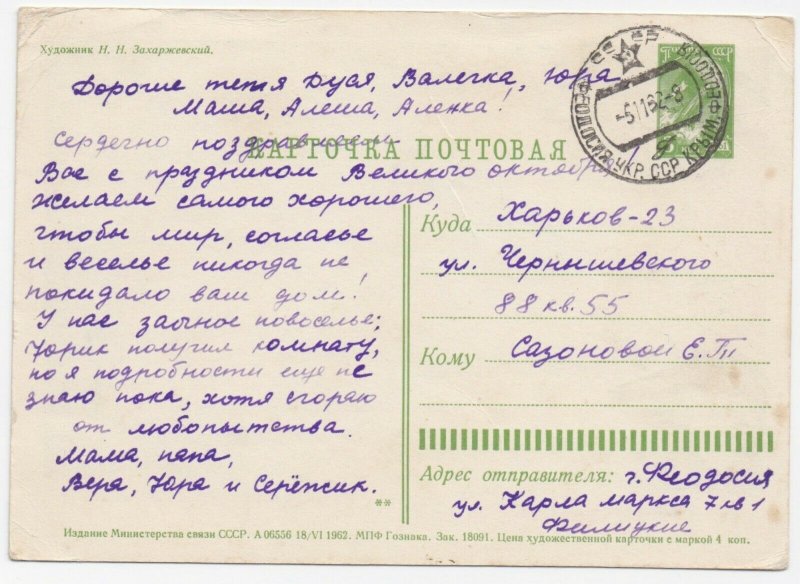 Художник Н. Н. Захаржевский.
Дорогие тетя Дуся, Валечка, Юра
Маша, Алеша, Аленка!
Сердечно поздравляем
КАРТОЧКА ПОЧТОВАЯ
Вас с праздником Великого октября,
желаем самого хорошего,
чтобы мир, согласье
и веселье никогда не
покидало ваш дом!
У нас заочное новоселье;
Юрик получил комнату,
но я подробности еще не
знаю пока, хотя сгораю
от любопытства.
Мама, папа,
Вера, Юра и Серёжик.
**
СССР
ФЕОДОСИЯ УКР. ССР КРЫМ. ФЕОДОС
-51162-8
Куда Харьков-23
ул. Чернышевского
88 кв. 55
Кому Сазоновой Е. Т
Адрес отправителя: г. Феодосия
ул. Карла Маркса 7 кв 1
Филицкие
Издание Министерства связи СССР. А 06556 18/VI 1962. МПФ Гознака. Зак. 18091. Цена художественной карточки с маркой 4 коп.